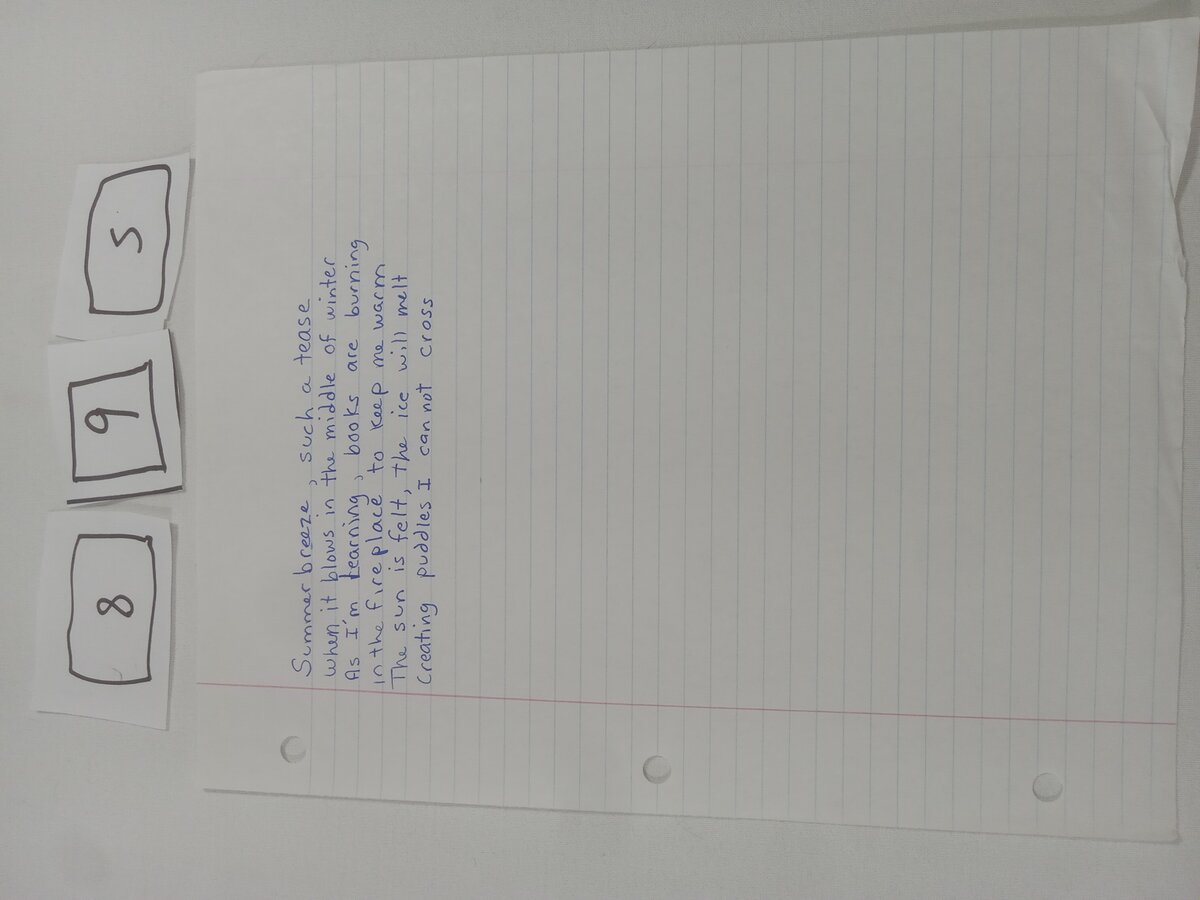 8 9 5
Summer breeze, such a tease
when it blows in the middle of winter
As I'm Learning, books are burning
in the fireplace to keep me warm
The sun is felt, the ice will melt
Creating puddles I can not cross